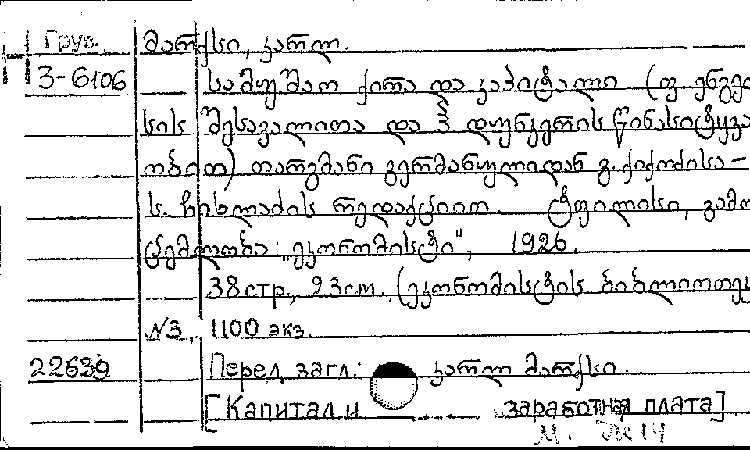 Груз. მარქსი, კარლ.
З-6106 სამუშაო ქირა და კაპიტალი (ფ. ენგელ
სის შესავალითა და პ. დუნკერის წინასიტყვა
ობით) თარგმანი გერმანულიდან გ. ქიქოძისა —
ს. ჩხილაძის რედაქციით ტფილისი, გამო
ცემლობა „ეკონომისტი", 1926.
38 стр., 23 см. (ეკონომისტის ბიბლიოთეკ
№3, 1100 экз.
22639 Перед загл: კარლ მარქსი.
[Капитал и заработная плата]